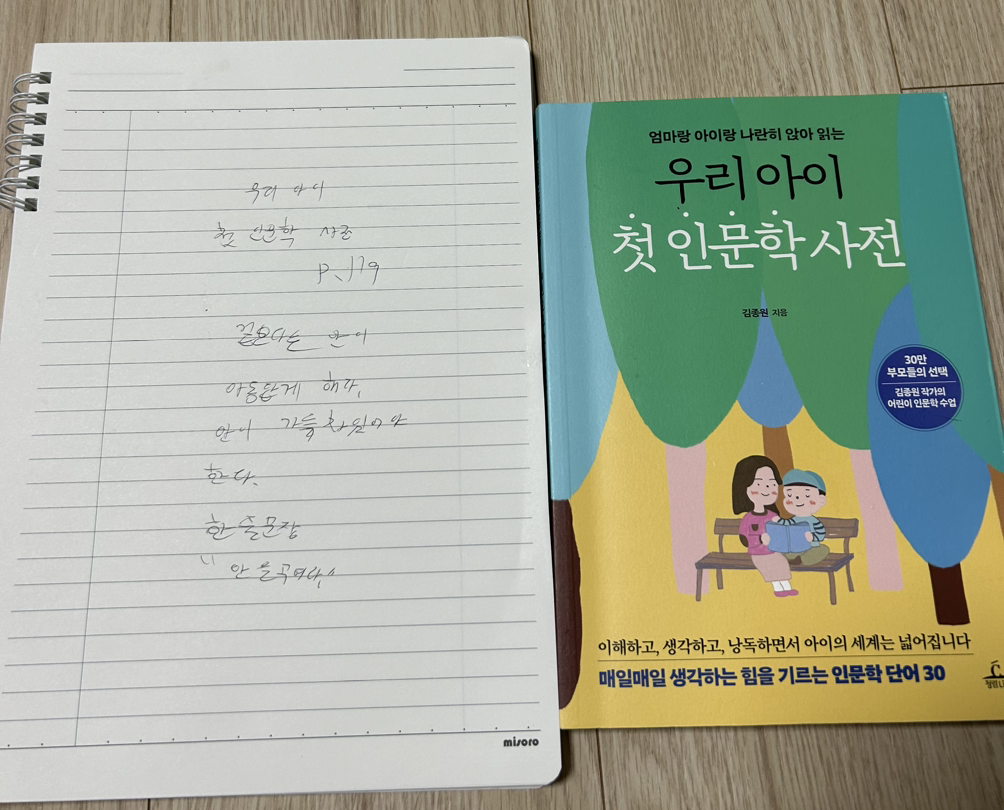 우리 아이
첫 인문학 사전
P. 179
겉보다는 안이
아름답게 해라.
안이 가득 차 있어야
한다.
한 줄 문장
misoro
엄마랑 아이랑 나란히 앉아 읽는
우리 아이
첫 인문학 사전
김종원 지음
30만
부모들의 선택
김종원 작가의
어린이 인문학 수업
이해하고, 생각하고, 낭독하면서 아이의 세계는 넓어집니다
매일매일 생각하는 힘을 기르는 인문학 단어 30